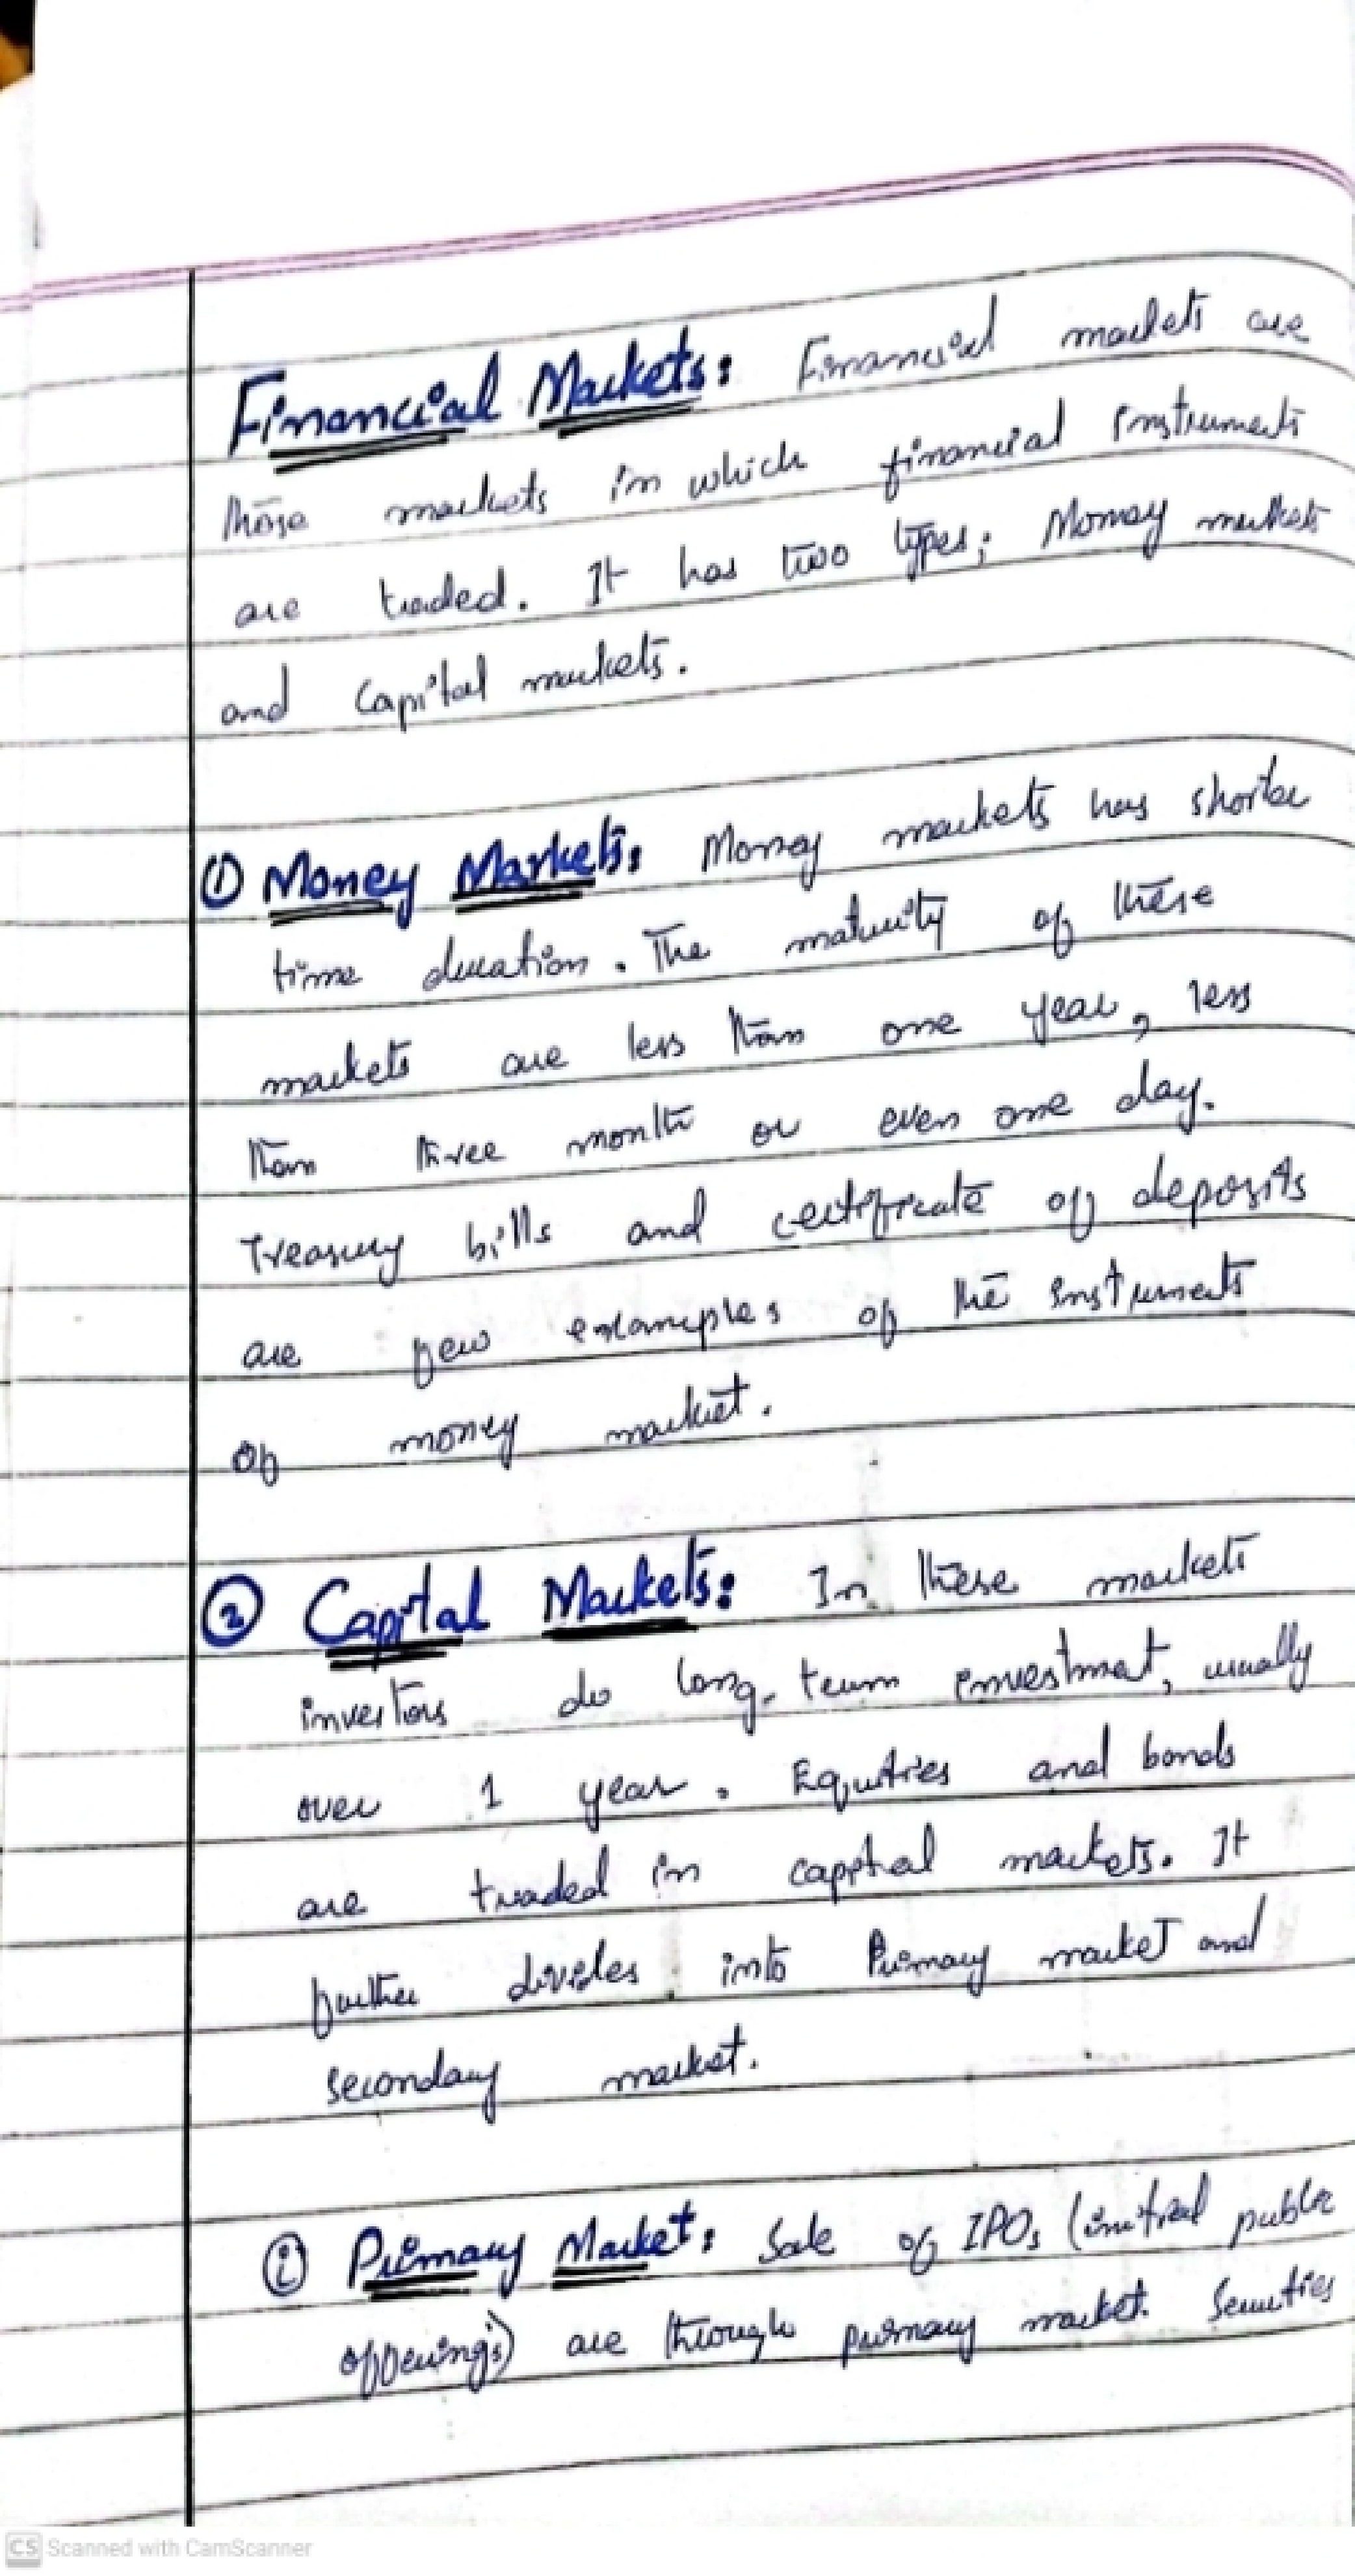 Financial Markets: Financial markets are
those markets in which financial instruments
are traded. It has two types; Money markets
and Capital markets.
① Money Markets: Money markets has shorter
time duration. The maturity of these
markets are less than one year, less
than three month or even one day.
Treasury bills and certificate of deposits
are few examples of the instruments
of money market.
② Capital Markets: In these markets
investors do long-term investment, usually
over 1 year. Equities and bonds
are traded in capital markets. It
further divides into Primary market and
secondary market.
ⓘ Primary Market: Sale of IPOs (initial public
offering's) are through primary market. Securities
CS Scanned with CamScanner